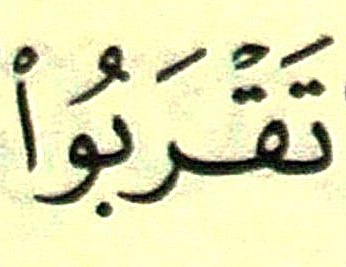 تَقْرَبُواْ